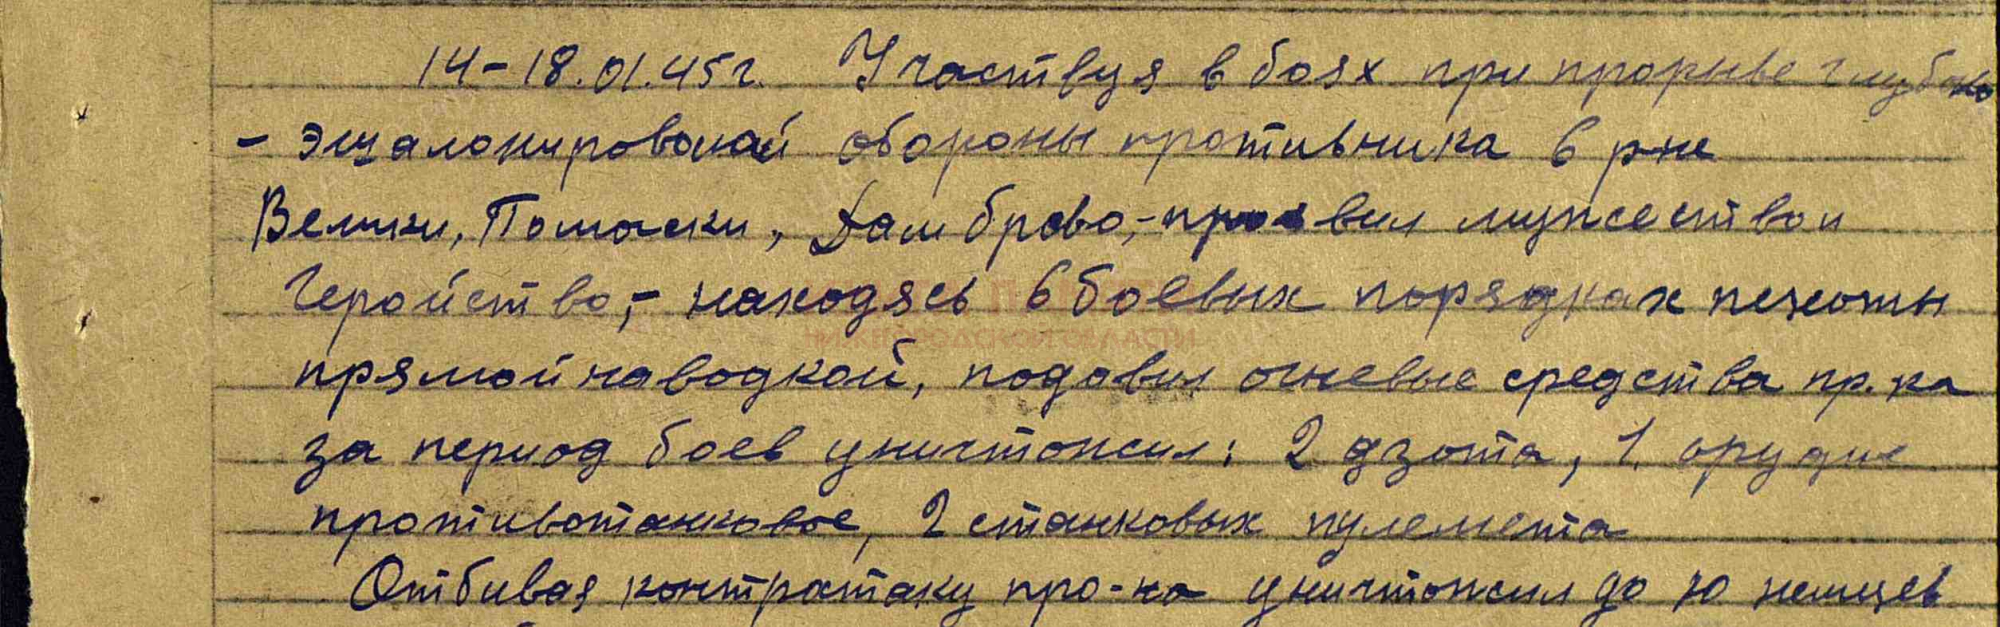 14-18.01.45г. Участвуя в боях при прорыве глубоко
- эшалонированой обороны противника в р-не
Велики, Помаски, Дамброво,- проявил мужество и
геройство,- находясь в боевых порядках пехоты
прямой наводкой, подавил огневые средства пр.ка
за период боев уничтожил: 2 дзота, 1 орудие
противотанковое, 2 станковых пулемета
Отбивая контратаку про-ка уничтожил до 10 немцев